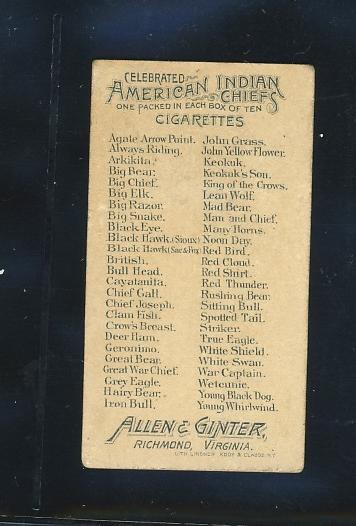 CELEBRATED
AMERICAN INDIAN
CHIEFS
ONE PACKED IN EACH BOX OF TEN
CIGARETTES
Agate Arrow Point.
Always Riding.
Arkikita.
Big Bear.
Big Chief.
Big Elk.
Big Razor.
Big Snake.
Black Eye.
Black Hawk.(Sioux)
Black Hawk(Sac & Fox)
British.
Bull Head.
Cayatanita.
Chief Gall.
Chief Joseph.
Clam Fish.
Crow's Breast.
Deer Ham.
Geronimo.
Great Bear.
Great War Chief.
Grey Eagle.
Hairy Bear.
Iron Bull.
John Grass.
John Yellow Flower.
Keokuk.
Keokuk's Son.
King of the Crows.
Lean Wolf.
Mad Bear.
Man and Chief.
Many Horns.
Noon Day.
Red Bird.
Red Cloud.
Red Shirt.
Red Thunder.
Rushing Bear.
Sitting Bull.
Spotted Tail.
Striker.
True Eagle.
White Shield.
White Swan.
War Captain.
Wetcunie.
Young Black Dog.
Young Whirlwind.
ALLEN & GINTER,
RICHMOND, VIRGINIA.
LITH. LINDNER, EDDY & CLAUSS, N.Y.